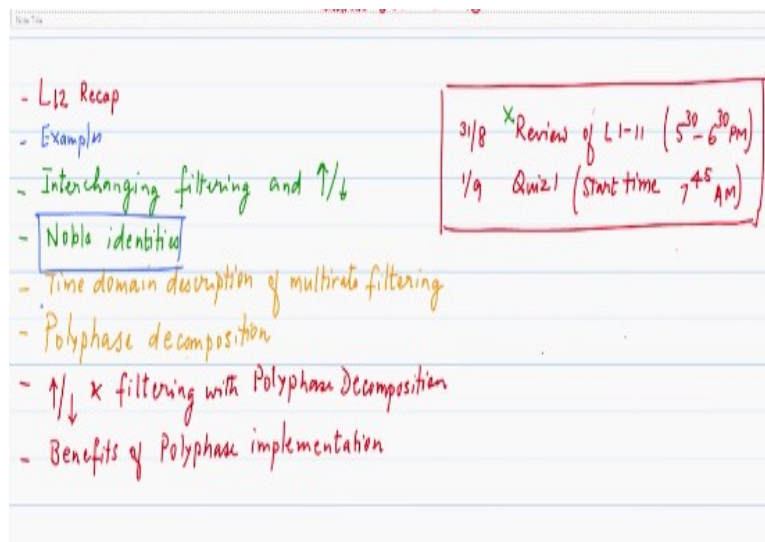 Note Title
- L12 Recap
- Examples
- Interchanging filtering and ↑/↓
- Noble identities
- Time domain description of multirate filtering
- Polyphase decomposition
- ↑/↓ x filtering with Polyphase Decomposition
- Benefits of Polyphase implementation
31/8 x Review of L1-11 (5 30 - 6 30 PM)
1/9 Quiz 1 (Start time 7 45 AM)